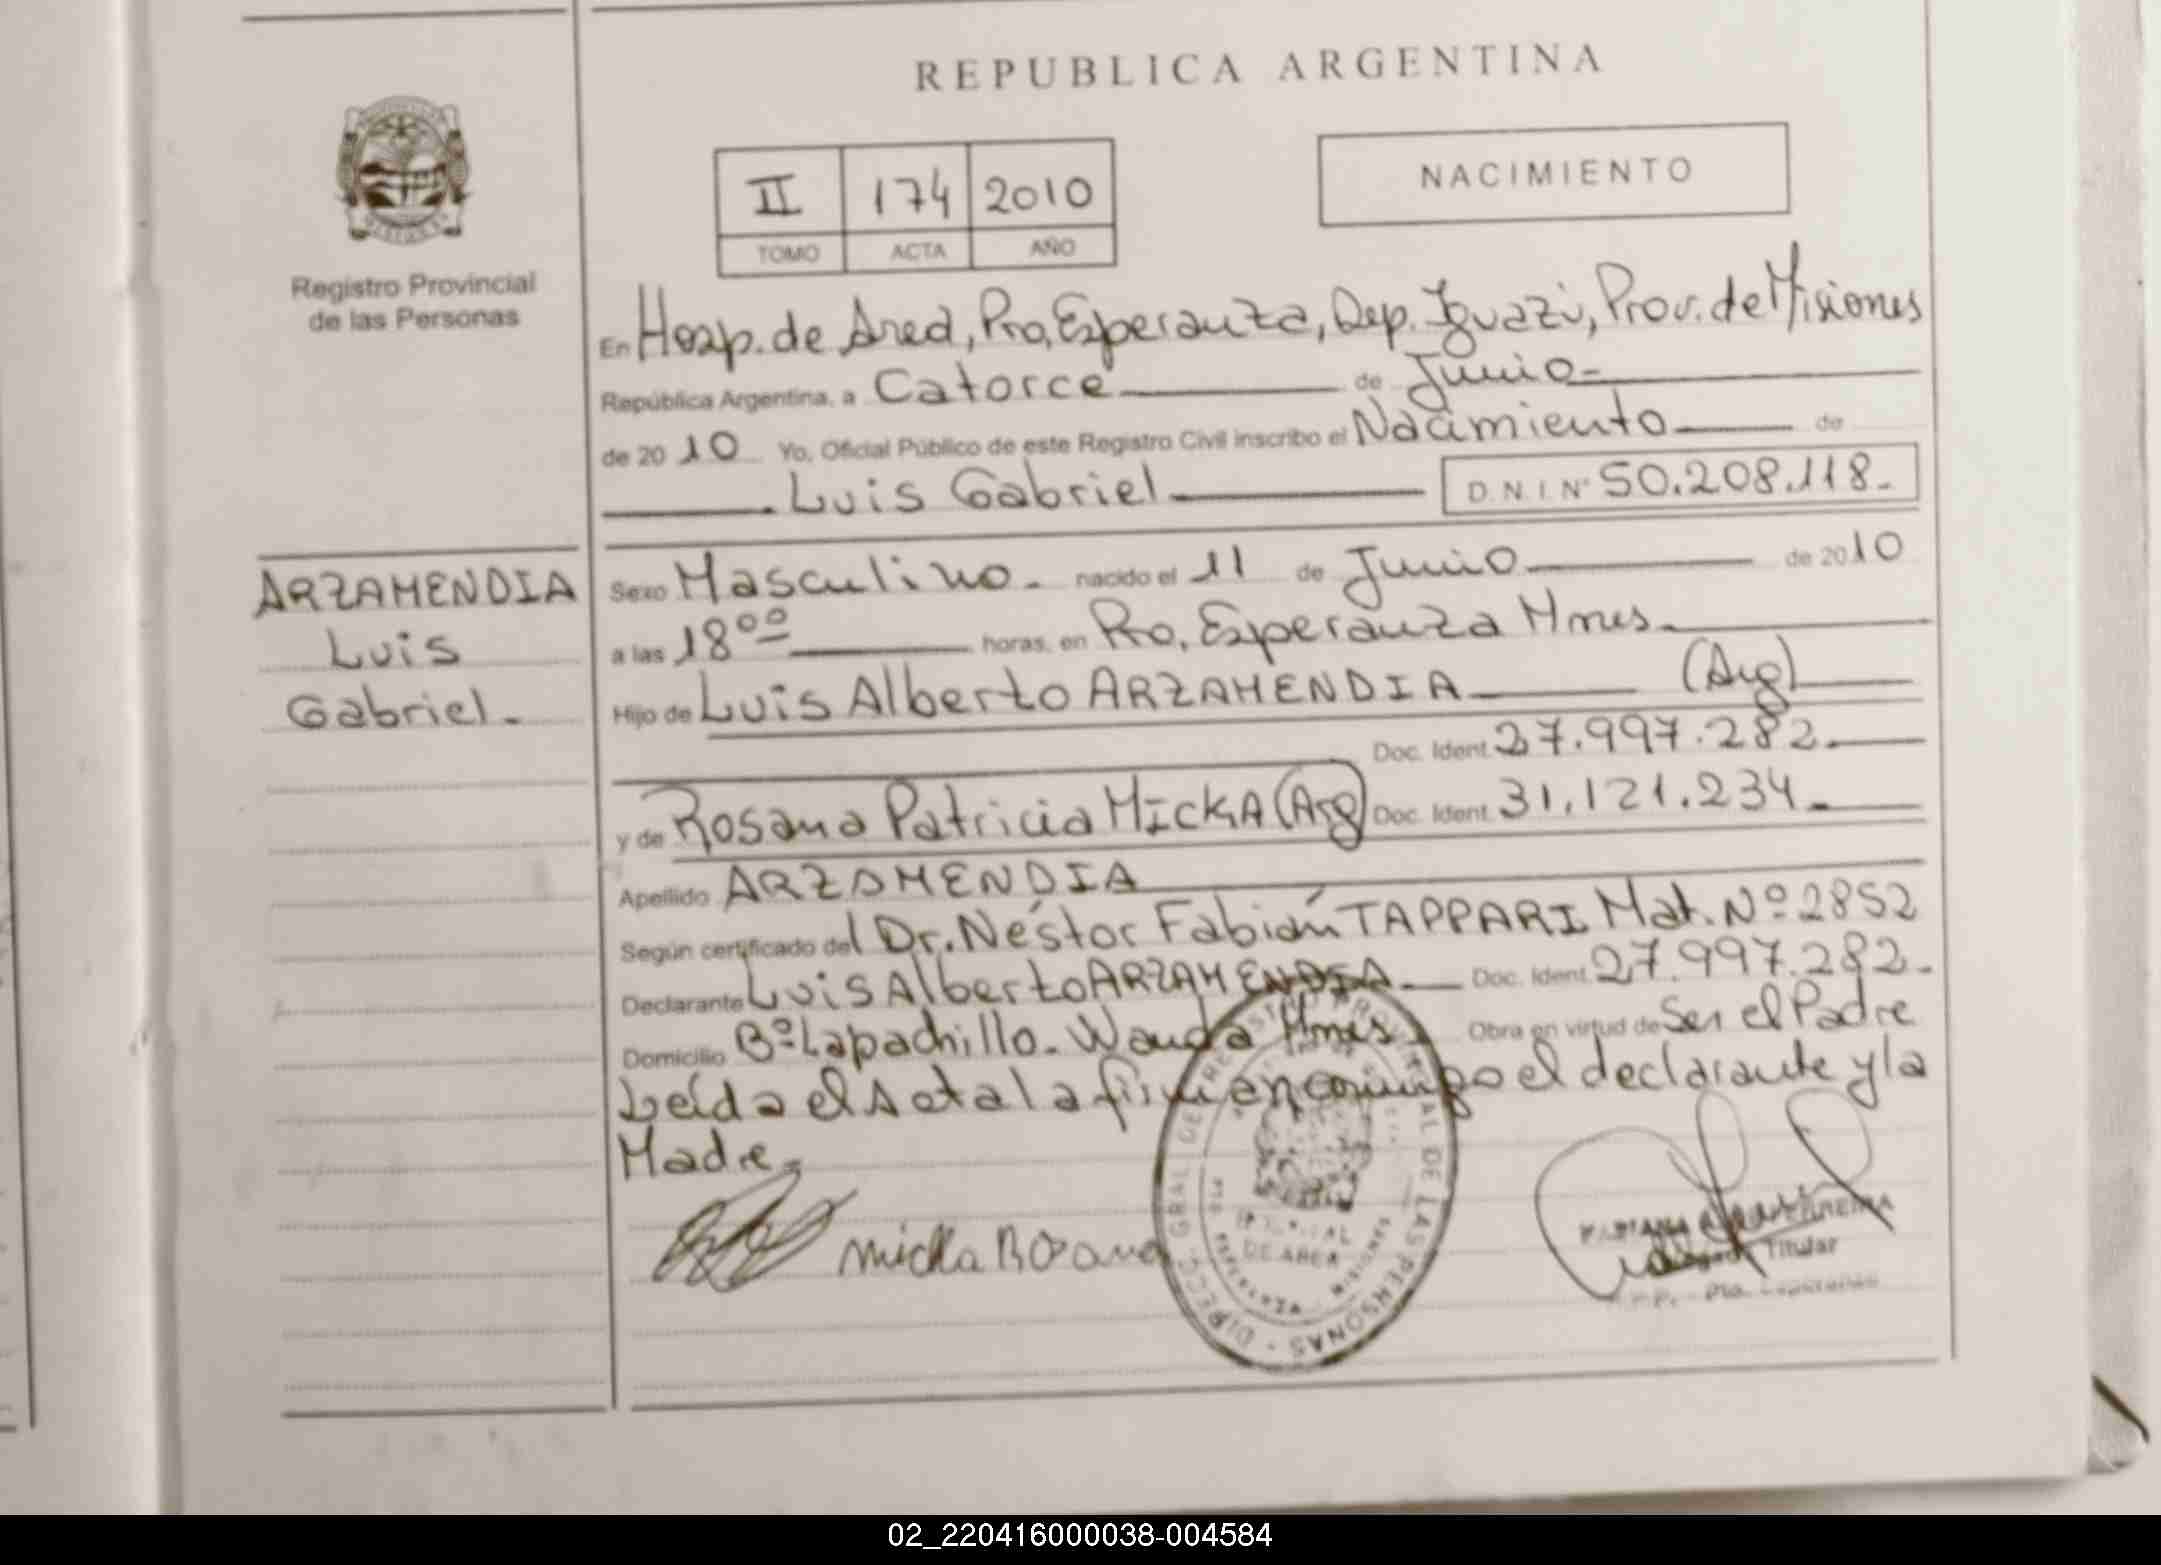 REPUBLICA ARGENTINA
II 174 2010
TOMO ACTA AÑO
NACIMIENTO
Registro Provincial
de las Personas
En Hosp. de Area, Pto, Esperanza, Dep. Iguazú, Prov. de Misiones
República Argentina, a Catorce de Junio
de 20 10 Yo, Oficial Público de este Registro Civil inscribo el Nacimiento de
Luis Gabriel D.N.I. Nº 50.208.118.-
ARZAMENDIA
Luis
Gabriel.-
Sexo Masculino.- nacido el 11 de Junio de 2010
a las 18ºº horas, en Pto, Esperanza Mnes.
Hijo de Luis Alberto ARZAMENDIA (Arg)
Doc. Ident. 27.997.282.
y de Rosana Patricia MICKA (Arg) Doc. Ident. 31.121.234.
Apellido ARZAMENDIA
Según certificado del Dr. Néstor Fabián TAPPARI Mat. Nº 2852
Declarante Luis Alberto ARZAMENDIA. Doc. Ident. 27.997.282.-
Domicilio Bº Lapachillo. Wanda Mnes. Obra en virtud de Ser el Padre
Leída el Acta la firman conmigo el declarante y la
Madre
DIRECC. GRAL DE REGISTRO PROVINCIAL DE LAS PERSONAS
HOSPITAL
DE AREA
Micka Rosana
Titular
Pto. Esperanza
02_220416000038-004584